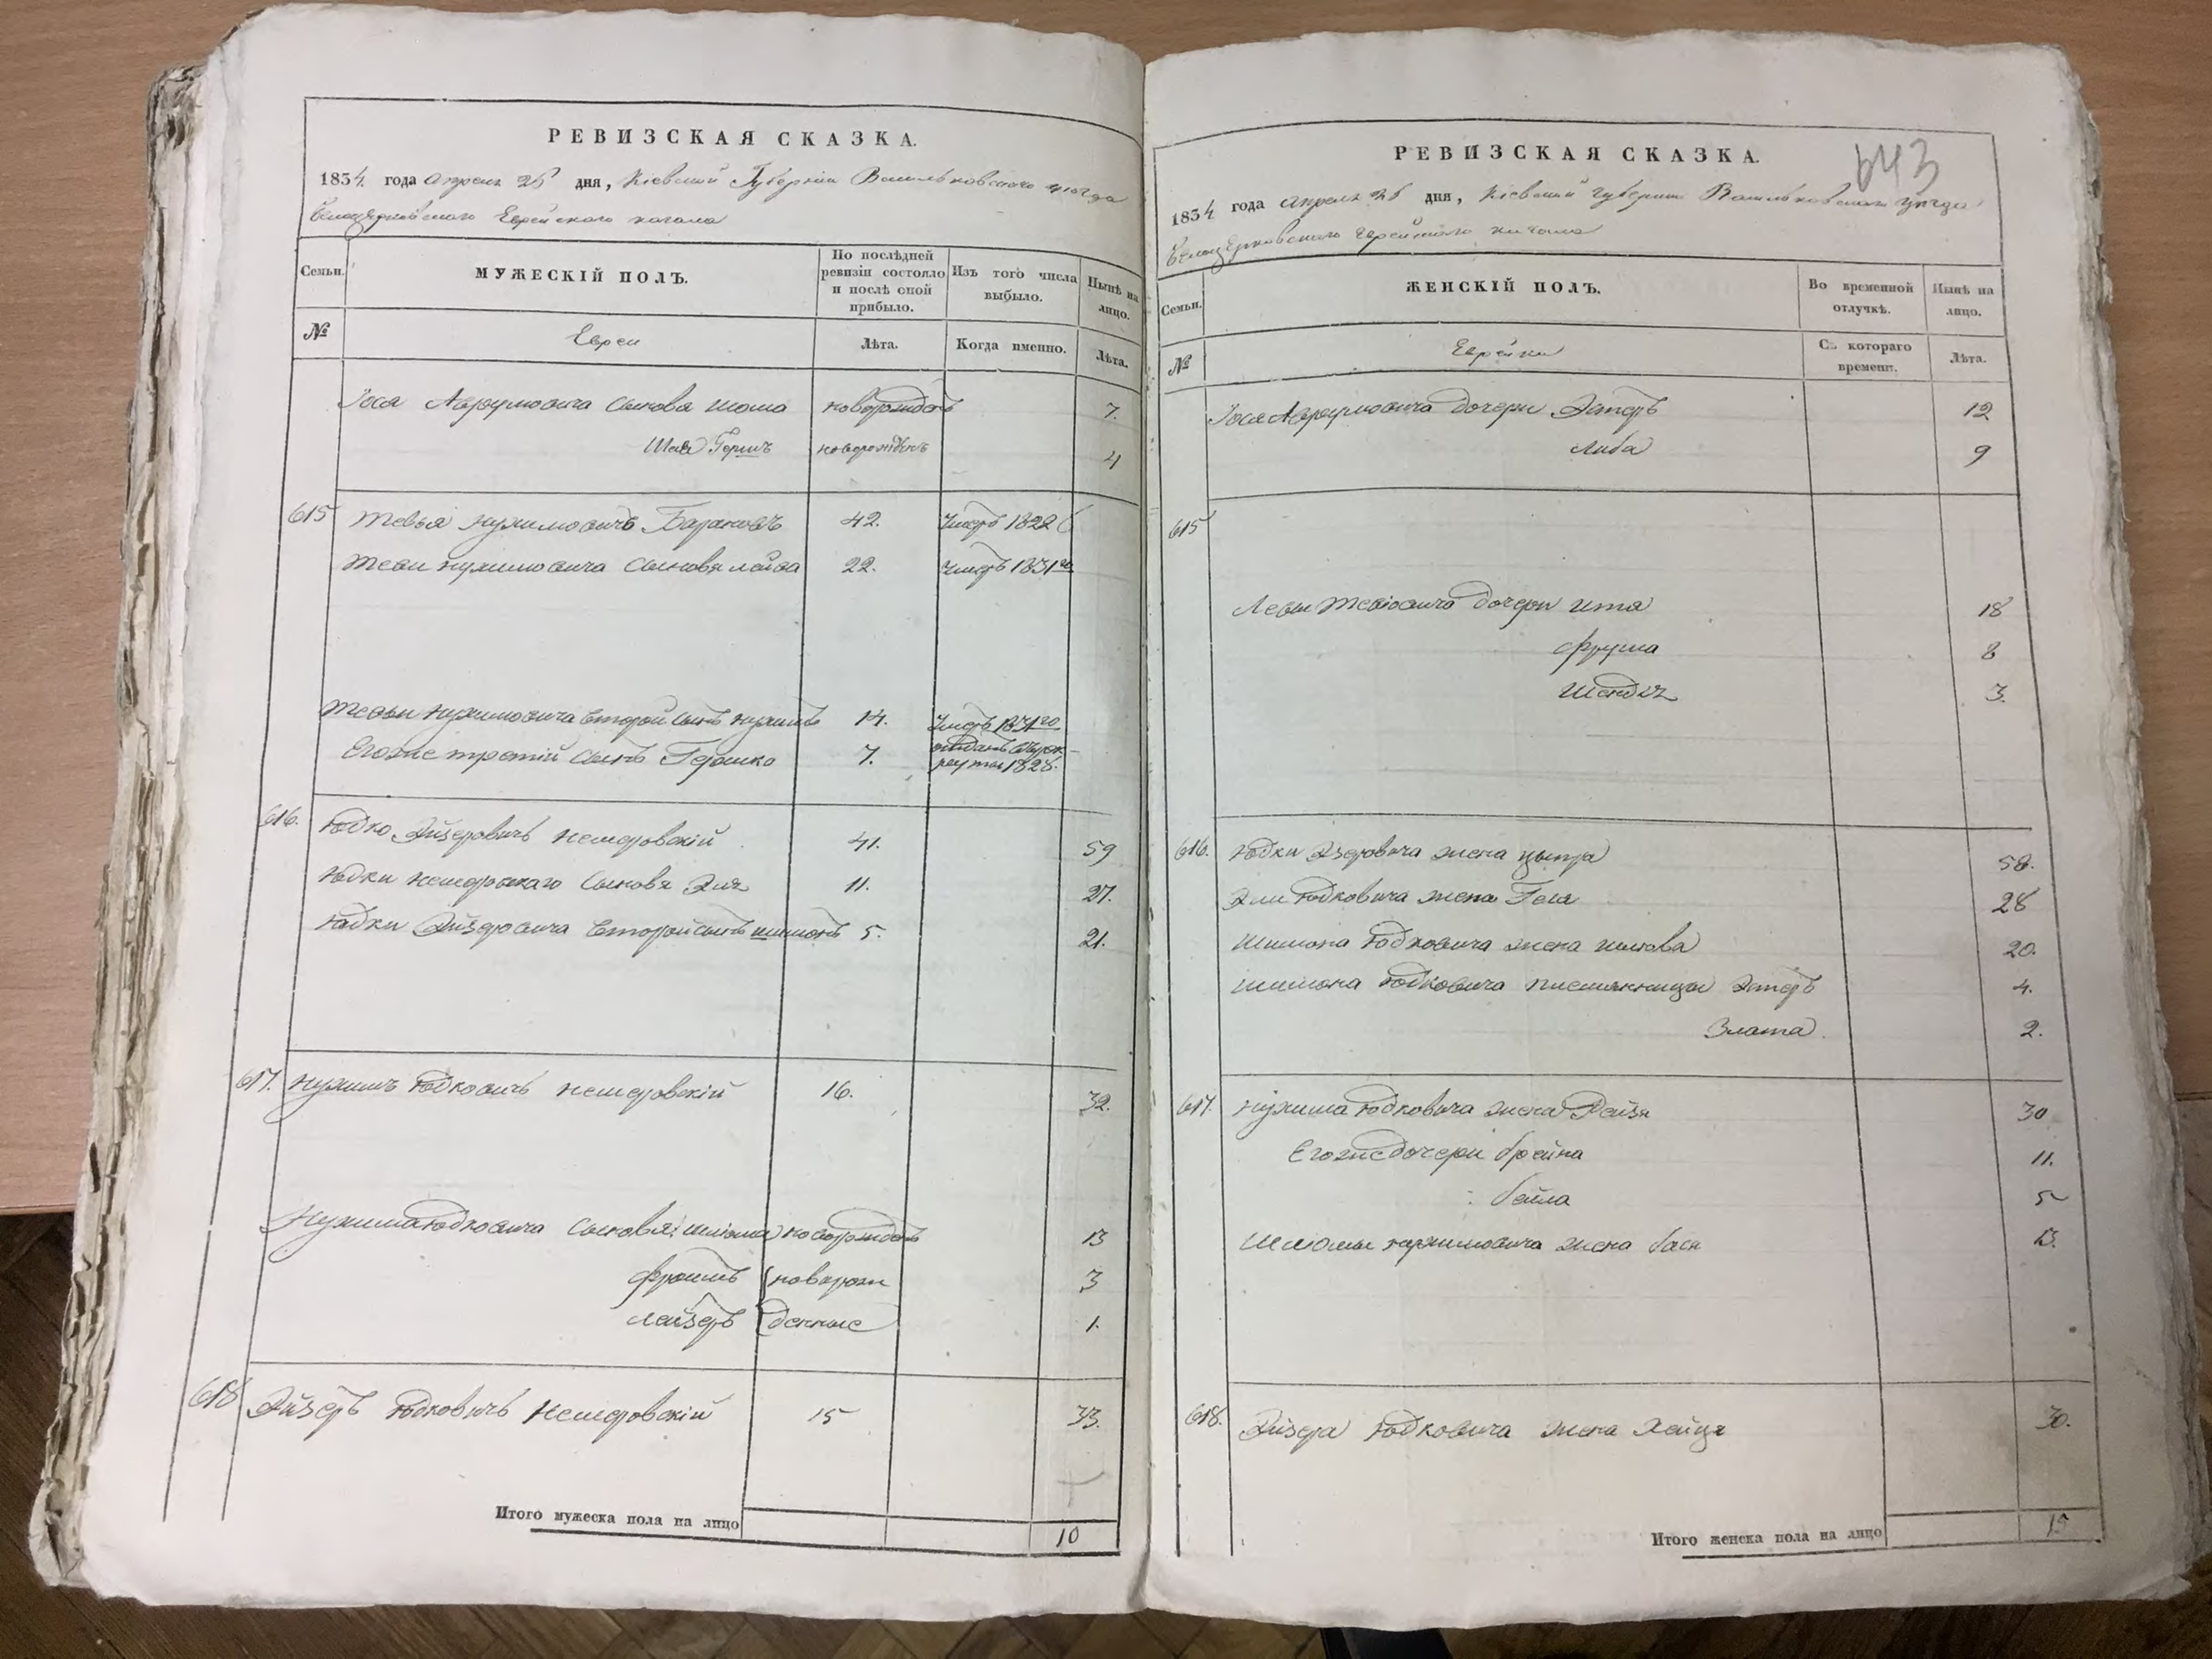 РЕВИЗСКАЯ СКАЗКА.
1834 года Апреля 25 дня, Кіевской Губерніи Васильковскаго уезда
Белоцерковскаго Еврейскаго кагала
Семьи.
МУЖЕСКІЙ ПОЛЪ.
По послѣдней ревизіи состояло и послѣ оной прибыло.
Изъ того числа выбыло.
Нынѣ на лицо.
№
Евреи
Лѣта.
Когда именно.
Лѣта.
Іося Аврумовича сыновя новорожденъ 7.
Гершъ новорожденъ 4
615 Тевья Нухимовичъ 42. Умеръ 1822
Теви Нухимовича сыновя Лейба 22. Умеръ 1831го
Тевьи Нухимовича второй сынъ Нухимъ 14. Умеръ
Егоже третій сынъ Гершко 7. отданъ въ рек-
руты 1828.
616. Юдко Эйзеровичъ Немеровскій 41. 59
Юдки Немеровскаго сыновя Эля 11. 27.
Юдки Эйзеровича второй сынъ Шимонъ 5. 21.
617. Нухимъ Юдковичъ Немеровскій 16. 32.
Нухима Юдковича сыновя Шліома новорожденъ 13
Фроимъ новорож 3
Лейзеръ денные 1.
618 Эйзеръ Юдковичъ Немеровскій 15 33.
Итого мужеска пола на лицо 10
643
РЕВИЗСКАЯ СКАЗКА.
1834 года Апреля 25 дня, Кіевской Губерніи Васильковскаго уезда
Белоцерковскаго Еврейскаго кагала
Семьи.
ЖЕНСКІЙ ПОЛЪ.
Во временной отлучкѣ.
Нынѣ на лицо.
№
Еврейки
Съ котораго времени.
Лѣта.
Іося Аврумовича дочери Эстеръ 12
Либа 9
615
Лебы Тевіовича дочери Ита 18
Фрума 8
Шендля 3.
616. Юдки Эзеровича жена Ципра 58.
Эли Юдковича жена Геля 28
Шимона Юдковича жена 20.
Шимона Юдковича племянницы Эстеръ 4.
Злата 2.
617. Нухима Юдковича жена Рейзя 30
Егоже дочери Брейна 11.
Бейла 5
Шліомы Нухимовича жена Бася 13.
618. Эйзера Юдковича жена 30.
Итого женска пола на лицо 15